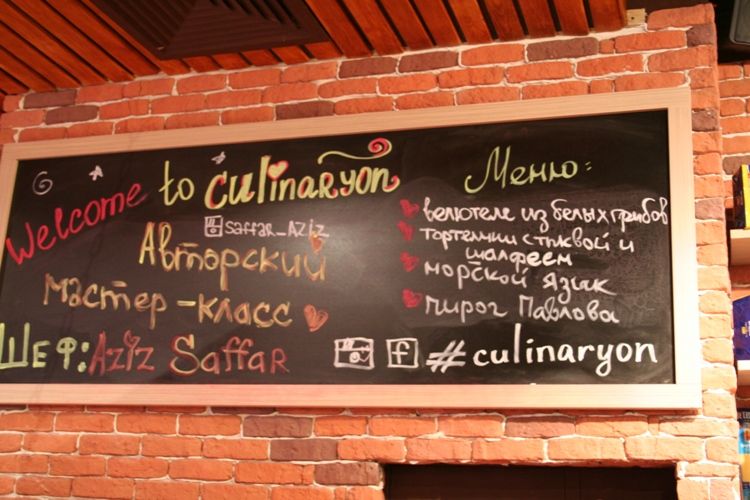 Welcome to CULINARYON
SAFFAR_AZIZ
Авторский
мастер-класс
Шеф: AZIZ SAFFAR
Меню:
велютеле из белых грибов
тортеллини с тыквой и
шалфеем
морской язык
пирог Павлова
f #culinaryon